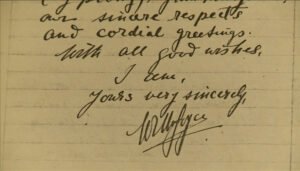 our sincere respects
and cordial greetings.
With all good wishes,
I am,
Yours very sincerely,